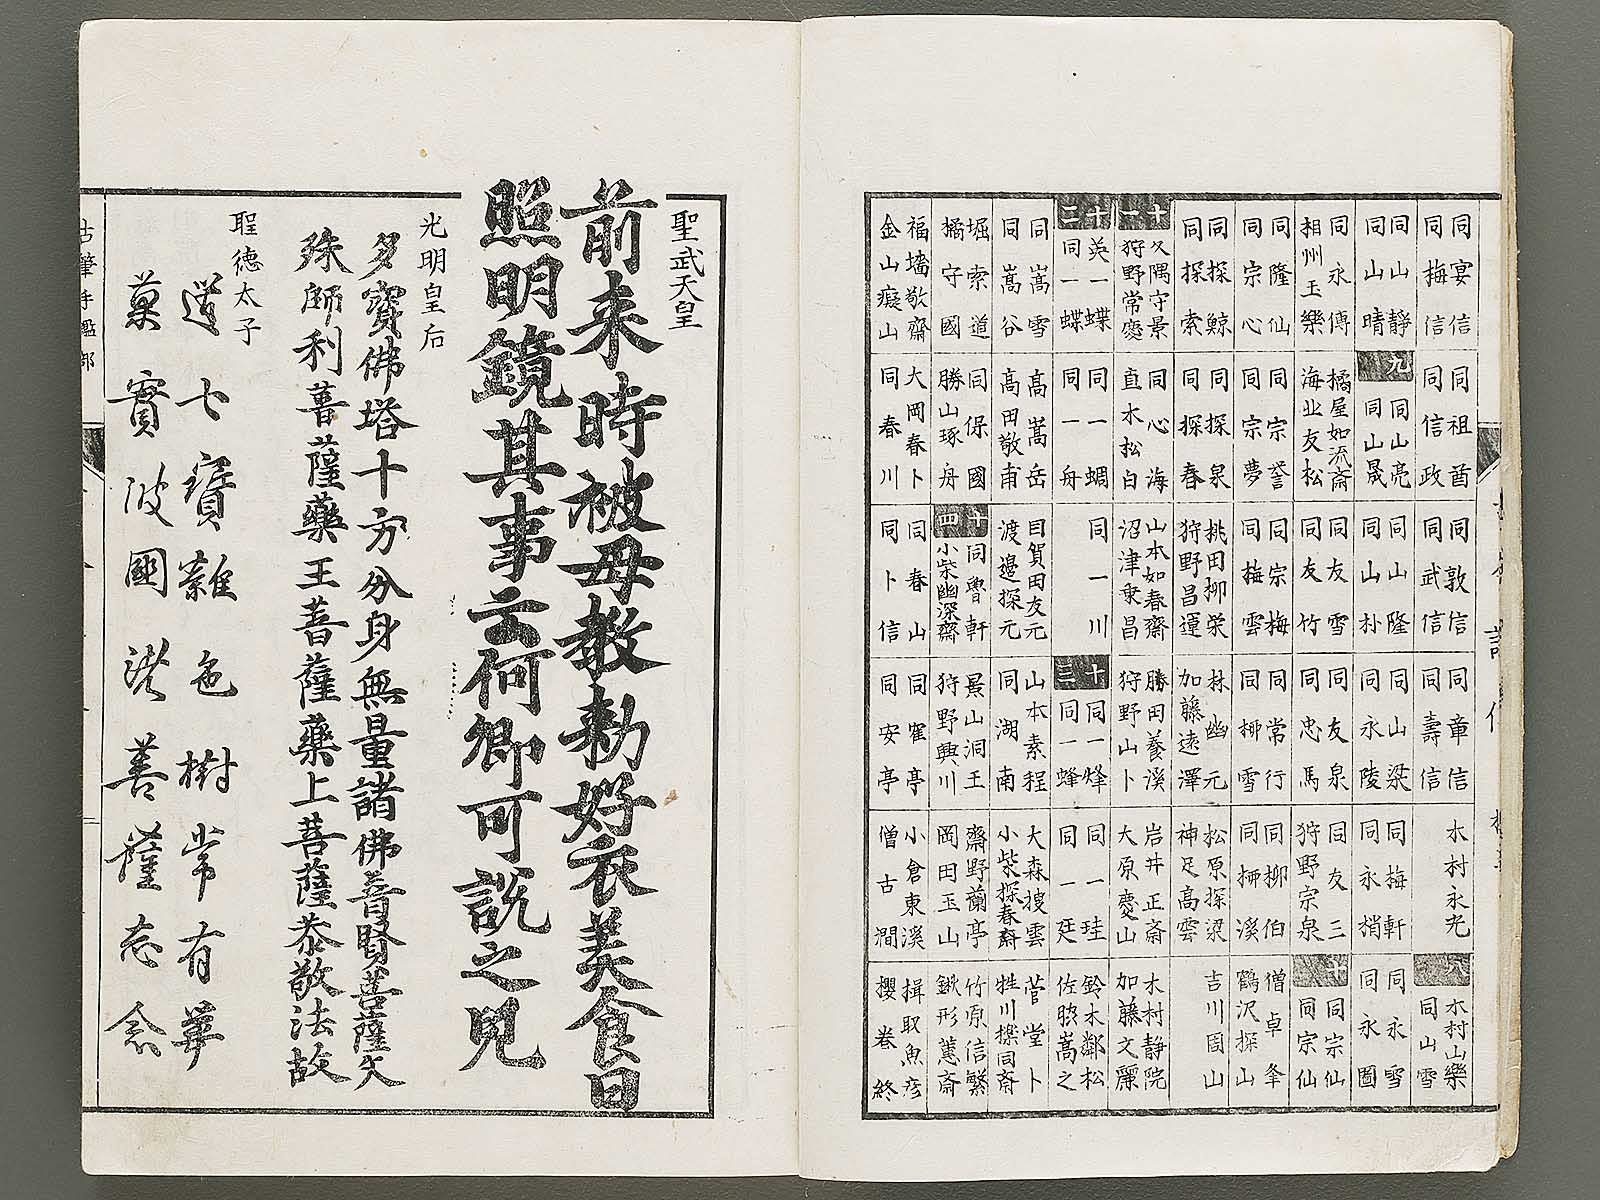 同宴信
同梅信
同山靜
同山晴
同永傳
相州玉樂
同隆仙
同宗心
同探鯨
同探索
十一
久隅守景
狩野常奕
十二
英一蝶
同一蝶
同嵩雪
同嵩谷
堀索道
橘守國
福墻敬齋
金山癡山
同祖酋
同信政
九
同山亮
同山晟
橘屋如流斎
海北友松
同宗誉
同宗夢
同探泉
同探春
同心海
直水松白
同一蜩
同一舟
高嵩岳
高田敬甫
同保國
勝山琢舟
大岡春卜
同春川
同敦信
同武信
同山隆
同山朴
同友雪
同友竹
同宗梅
同梅雲
桃田柳栄
狩野昌運
山本如春齋
沼津乗昌
同一川
目賀田友元
渡邉探元
十四
同魯軒
小柴幽深齋
同春山
同卜信
同章信
同壽信
同山梁
同永陵
同友泉
同忠馬
同常行
同栁雪
林幽元
加藤遠澤
勝田養溪
狩野山卜
十三
同一烽
同一蜂
山本素程
同湖南
景山洞玉
狩野興川
同寉亭
同安亭
木村永光
同梅軒
同永梢
同友三
狩野宗泉
同柳伯
同栁溪
松原探梁
神足高雲
岩井正斎
大原慶山
同一珪
同一珽
大森捜雲
小柴探春齋
齋野蘭亭
岡田玉山
小倉東溪
僧古澗
八
木村山樂
同山雪
同永雪
同永圖
十
同宗仙
同宗仙
僧卓峯
鶴沢探山
吉川固山
木村静院
加藤文麗
鈴木鄰松
佐脇嵩之
菅堂卜
牲川操同斎
竹原信繁
鍬形蕙斎
揖取魚彦
櫻巻終
聖武天皇
前来時被母教勅好衣美食日
照明鏡其事云何卿可説之兒
光明皇后
多寶佛塔十方分身無量諸佛普賢菩薩文
殊師利菩薩藥王菩薩藥上菩薩恭敬法故
聖徳太子
道七寳雜色樹常有華
菓實波國渋善薩志念
古筆手鑑部